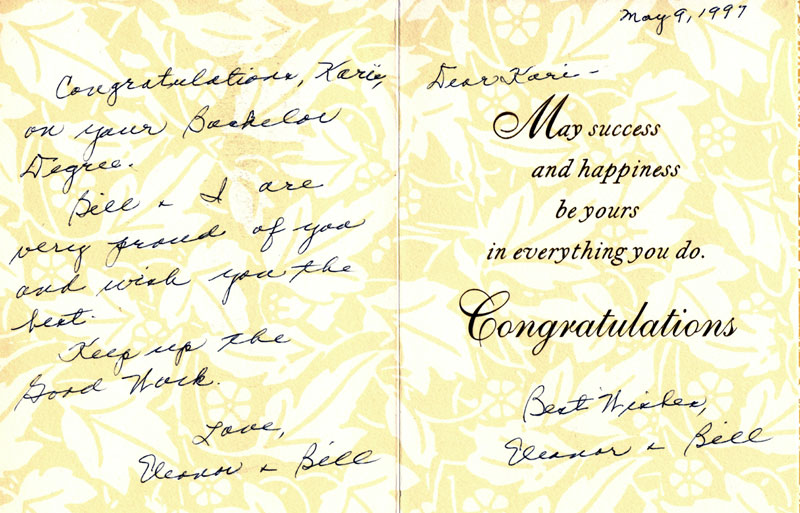 Congratulations, Kari,
on your Bachelor
Degree.
Bill & I are
very proud of you
and wish you the
best.
Keep up the
Good Work.
Love,
Eleanor & Bill
May 9, 1997
Dear Kari -
May success
and happiness
be yours
in everything you do.
Congratulations
Best Wishes,
Eleanor & Bill